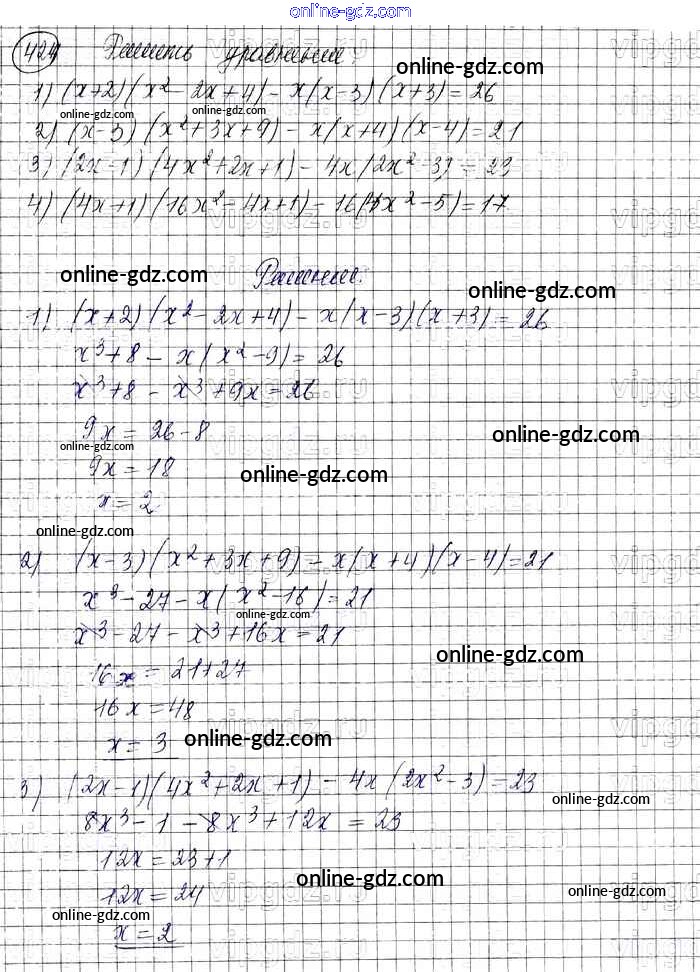 online-gdz.com
424 Решить уравнения:
online-gdz.com
1) (x+2)(x² - 2x+4) - x(x-3)(x+3) = 26
online-gdz.com online-gdz.com
2) (x-3)(x²+3x+9) - x(x+4)(x-4) = 21
3) (2x-1)(4x²+2x+1) - 4x(2x²-3) = 23
4) (4x+1)(16x²-4x+1) - 16(4x²-5) = 17
online-gdz.com Решение:
online-gdz.com
1) (x+2)(x²-2x+4) - x(x-3)(x+3) = 26
x³+8 - x(x²-9) = 26
x³+8 - x³+9x = 26
9x = 26-8
online-gdz.com online-gdz.com
9x = 18
online-gdz.com
x = 2
online-gdz.com
2) (x-3)(x²+3x+9) - x(x+4)(x-4) = 21
x³-27 - x(x²-16) = 21
online-gdz.com
x³-27 - x³+16x = 21
online-gdz.com
16x = 21+27
16x = 48
x = 3 online-gdz.com
3) (2x-1)(4x²+2x+1) - 4x(2x²-3) = 23
online-gdz.com
8x³-1-8x³+12x = 23
12x = 23+1
online-gdz.com
12x = 24 online-gdz.com
online-gdz.com
x = 2